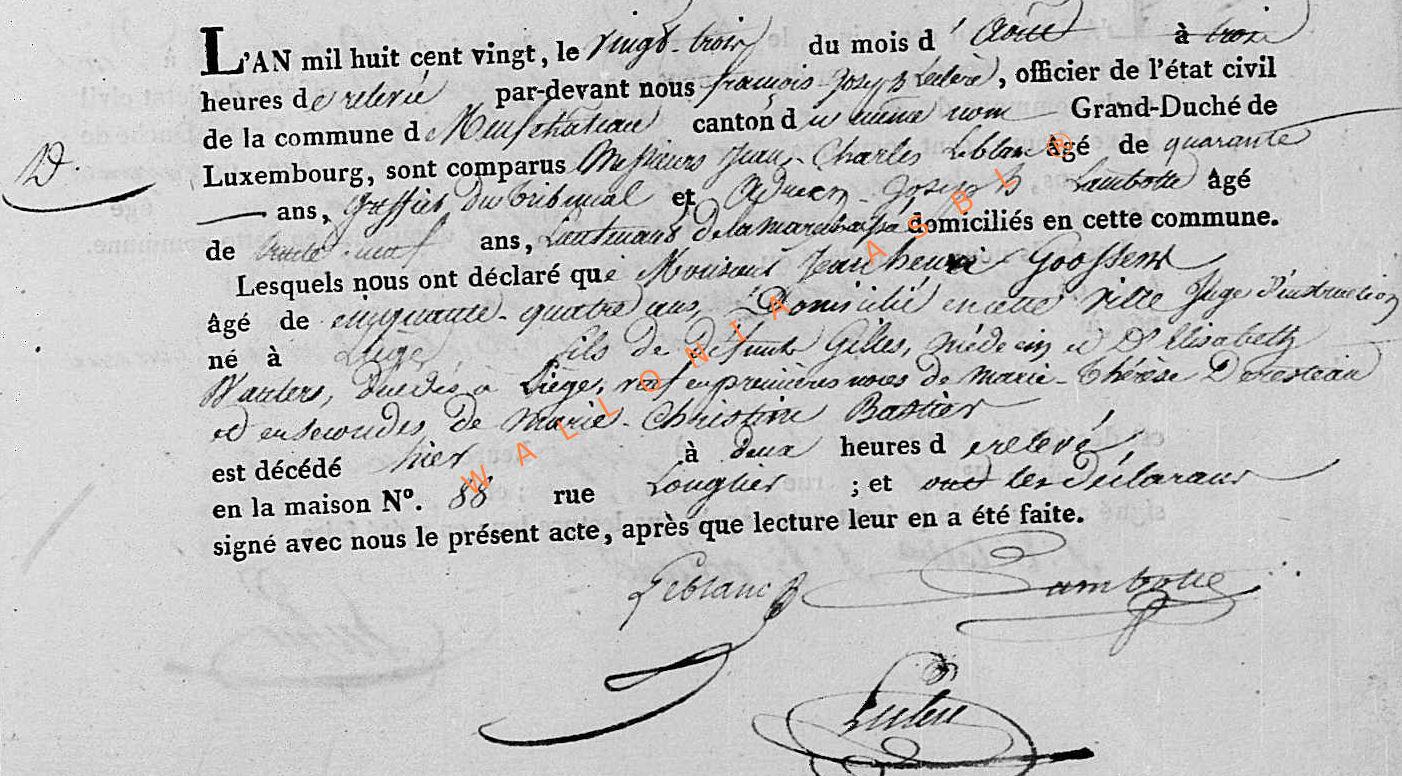 L'AN mil huit cent vingt, le vingt-trois du mois d'Août à trois
heures de relevée par-devant nous françois-Joseph Leclere, officier de l'état civil
de la commune de Neufchateau canton du même nom Grand-Duché de
Luxembourg, sont comparus Messieurs Jean-Charles Leblanc âgé de quarante
ans, Greffier du tribunal et Adrien-Joseph Lambotte âgé
de trente-neuf ans, Lieutenant de la maréchaussée domiciliés en cette commune.
Lesquels nous ont déclaré que Monsieur Jean henri Goossens
âgé de cinquante-quatre ans, Domicilié en cette ville Juge d'instruction
né à Liège, fils de defunts Gilles, médecin et De Elisabeth
Wauters, décédés à Liège, veuf en premières noces de Marie-Thérèse
et en secondes de Marie-Christine Bastier
est décédé hier à deux heures de relevée
en la maison N°. 88 rue Longlier ; et ont les Déclarans
signé avec nous le présent acte, après que lecture leur en a été faite.
Leblanc Lambotte
Leclere
WALLONIA ASBL ©